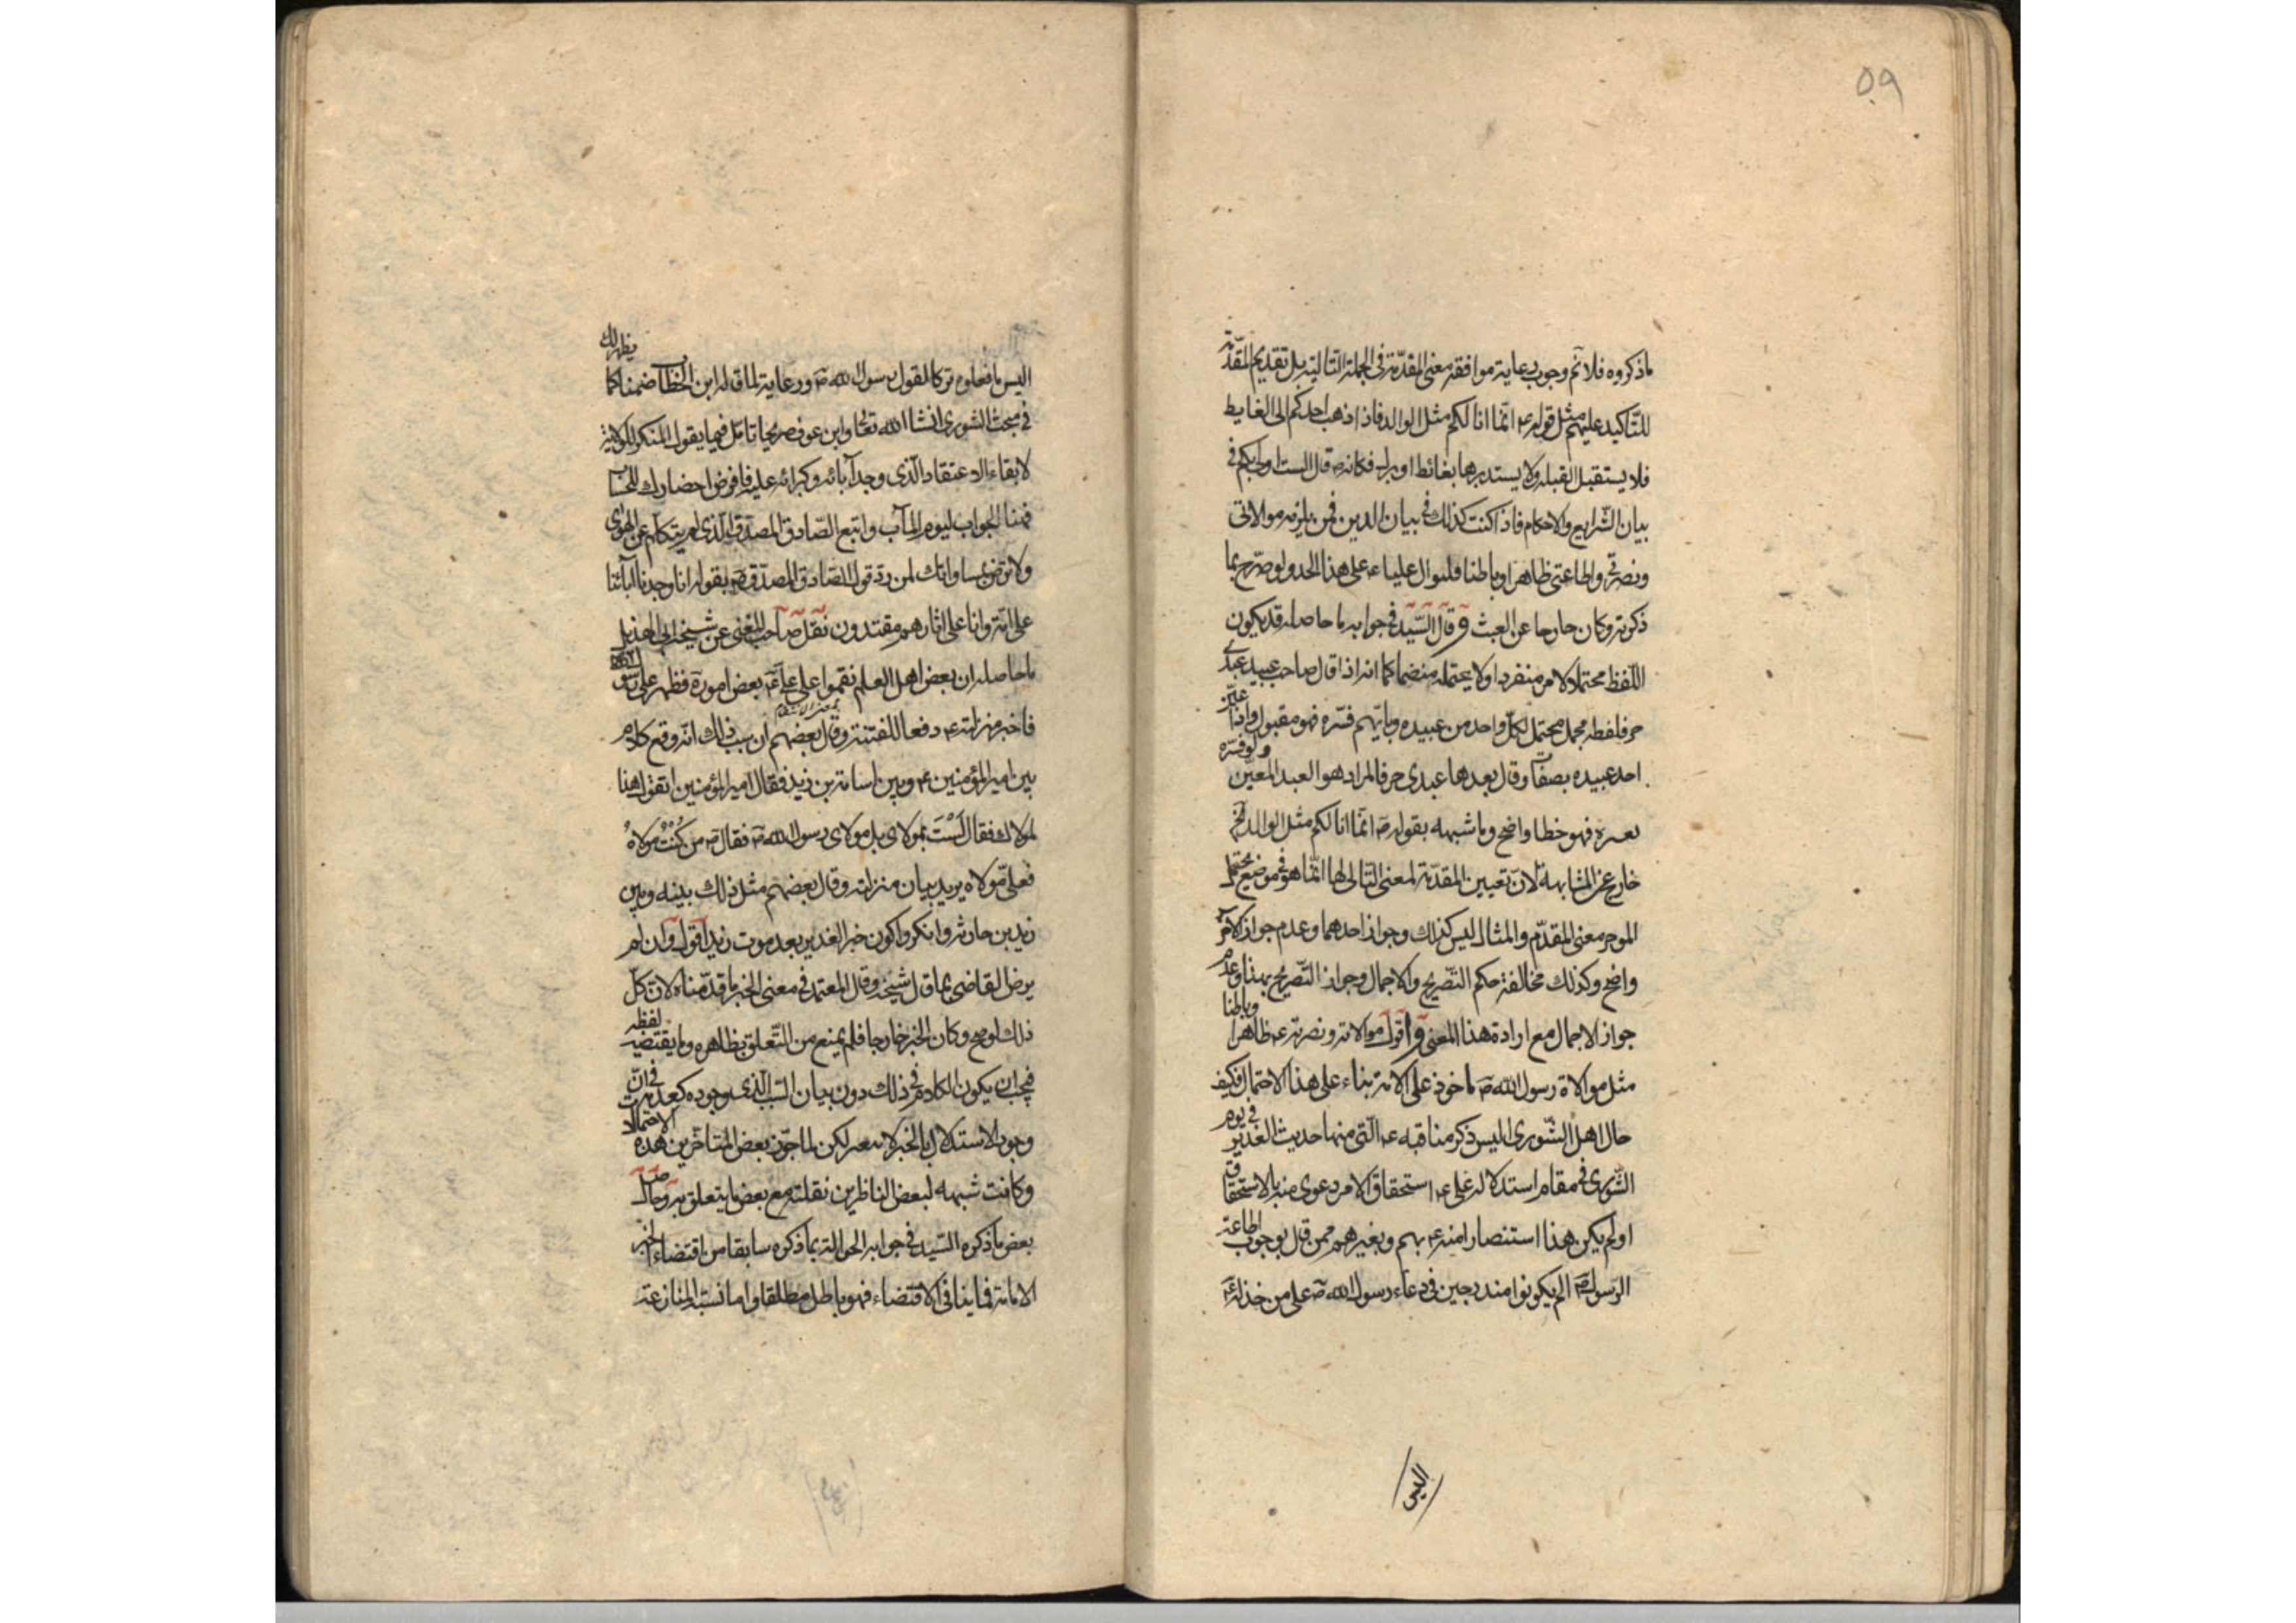 ۵۹
ما ذكروه فلا نم وجوب رعاية موافقة معنى المقدّمة فى الجملة التالية بل تقديم المقدّمة
للتّاكيد عليهم مثل قوله ۴ انّما انا لكم مثل الوالد فاذا ذهب احدكم الى الغايط
فلا يستقبل القبلة ولا يستدبرها بغائط او بول فكانه ص قال الست اولى بكم فى
بيان الشرايع والاحكام فاذا كنت كذلك فى بيان الدين فمن يلزمه موالاتى
ونصرتى واطاعتى ظاهرا وباطنا فليوال عليا ۴ على هذا الحد ولو صرّح بما
ذكرته وكان خارجا عن العبث و قال السّيد فى جوابه ما حاصله قد يكون
اللّفظ محتملا لامر منفردا ولا يحتمله منضما كما انه اذا قال صاحب عبيد عبدى
حر فلفظه مجمل محتمل لكلّ واحد من عبيده وبايّهم فسّره فهو مقبول واذا عيّن
احد عبيده بصفات وقال بعدها عبدى حر فالمراد هو العبد المعيّن ولو فسّره
بغيره فهو خطا واضح وما شبهه بقوله ص انّما انا لكم مثل الوالد الخ
خارج عن المشابهة لانّ تعيين المقدّمة لمعنى التّالى لها انّما هو فى موضع محتمل
المؤخر معنى المقدّم والمثال ليس كذلك وجواز احدهما وعدم جواز الآخر
واضح وكذلك مخالفة حكم التّصريح والاجمال وجواز التّصريح بهنا وعدم
جواز الاجمال مع ارادة هذا المعنى و اقول موالاته ونصرته ۴ ظاهرا وباطنا
مثل موالاة رسول الله ص ماخوذ على الامة بناء على هذا الاحتمال فكيف
حال اهل الشّورى اليس ذكر مناقبه ۴ الّتى منها حديث الغدير فى يوم
الشّورى فى مقام استدلاله على ۴ استحقاق الامر دعوى منه بالاستحقاق
او لم يكن هذا استنصارا منه ۴ بهم وبغيرهم ممن قال بوجوب اطاعة
الرّسول ص الم يكونوا مندرجين فى دعاء رسول الله ص على من خذله ۴
اليس
اليس ما فعلوه تركا لقول رسول الله ص ورعاية لما قاله ابن الخطاب ضمنا كما يظهر لك
فى مبحث الشورى انشا الله تعالى وابن عوف صريحا تامّل فيما يقول المنكر للولاية
لابقاء الاعتقاد الّذى وجد آبائه وكبرائه عليه فافرض احضارك للحساب
الجواب ليوم المآب واتبع الصّادق المصدّق الّذى لم يتكلّم عن الهوى
ولا ترض بمساواتك لمن ردّ قول الصّادق المصدّق ص بقوله انا وجدنا آبائنا
على امّة وانا على اثارهم مقتدون نقل صاحب المغنى عن شيخه ابى الهذيل
ما حاصله ان بعض اهل العلم نقموا على على ۴ بعض اموره فظهر على رسول الله
فاخبر منزلته ۴ دفعا للفتنة وقال بعضهم ان سبب ذلك انّه وقع كلام
بمعنى الانتقام
بين امير المؤمنين ۴ وبين اسامة بن زيد فقال امير المؤمنين اتقول هذا
لمولاك فقال لَسْتَ بمولاى بل مولاى رسول الله ص فقال ص من كُنْتُ مولاهُ
فعلىّ مولاه يريد بيان منزلته وقال بعضهم مثل ذلك بينه وبين
زيد بن حارثه وانكروا كون خبر الغدير بعد موت زيد اقول وان لم
يرض القاضى بما قال شيخه وقال المعتمد فى معنى الخبر ما قدّمناه لانّ كلّ
ذلك لو صح وكان الخبر خارجا فلم يمنع من التّعلق بظاهره وما يقتضيه لفظه
فيجب ان يكون الكلام فى ذلك دون بيان السّبب الّذى وجوده كعدمه فى انّ
وجود الاستدلال بالخبر لا يتغير لكن لما جوّز بعض المتاخّرين هذه الاحتمالات
وكانت شبهه لبعض النّاظرين نقلته مع بعض ما يتعلق به وحاصل
بعض ما ذكره السّيد فى جوابه الحوالة بما ذكره سابقا من اقتضاء الخبر
الامامة فما ينافى الاقتضاء فهو باطل مطلقا واما نسبة المنازعة